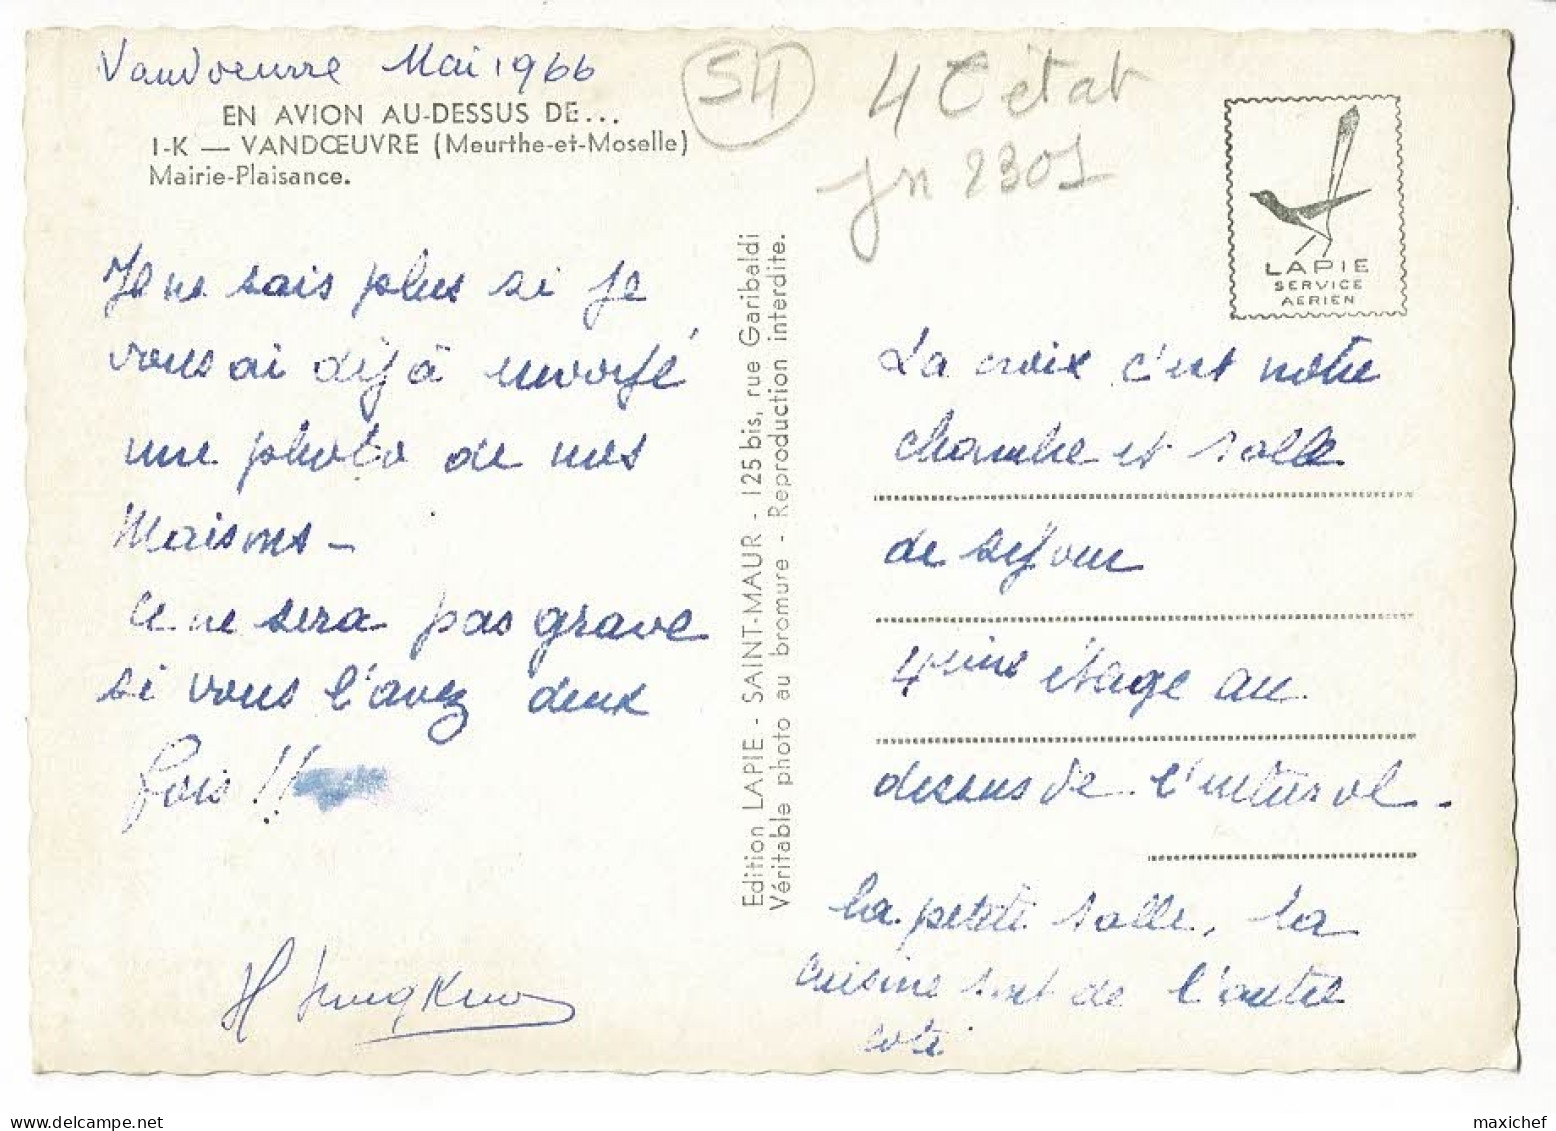 Vandoeuvre Mai 1966
EN AVION AU-DESSUS DE...
I-K — VANDŒUVRE (Meurthe-et-Moselle)
Mairie-Plaisance.
54
4 état
2301
LAPIE
SERVICE
AERIEN
Je ne sais plus si je
vous ai déjà envoyé
une photo de nos
Maisons -
Ce ne sera pas grave
si vous l'avez deux
fois !!
Edition LAPIE - SAINT-MAUR - 125 bis, rue Garibaldi
Véritable photo au bromure - Reproduction interdite.
La croix c'est notre
chambre et salle
de séjour
4ème étage au
dessus de
la petite salle, la
cuisine sont de l'autre
coté
maxichef